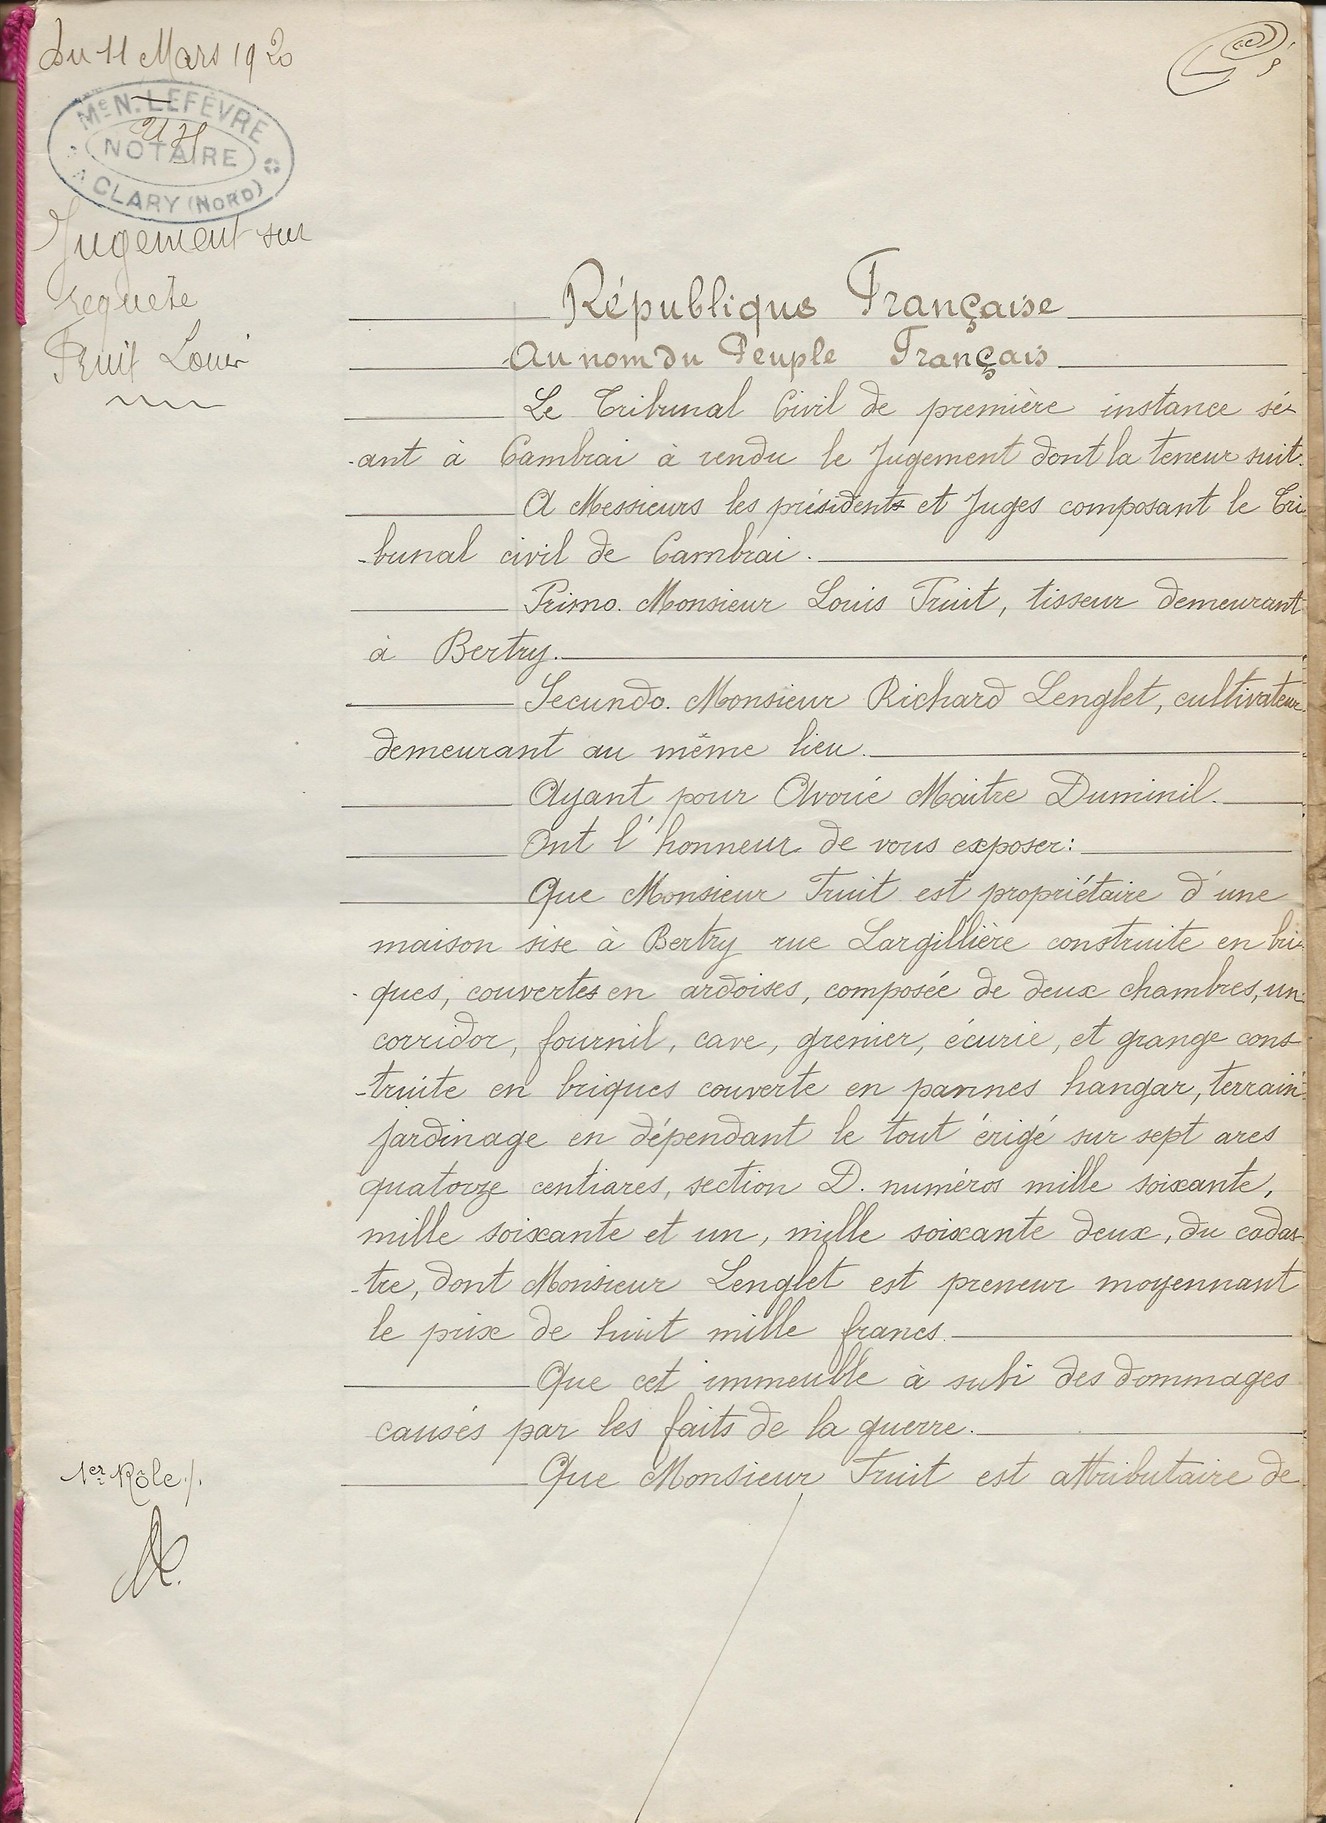 Du 11 Mars 1920
Me N. LEFÈVRE
NOTAIRE
A CLARY (NORD)
Jugement sur
requête
Truit Louis
République Française
Au nom du Peuple Français
Le Tribunal Civil de première instance sé-
-ant à Cambrai à rendu le Jugement dont la teneur suit.
A Messieurs les présidents et Juges composant le Tri
-bunal civil de Cambrai.
Primo. Monsieur Louis Truit, tisseur demeurant
à Bertry.
Secundo. Monsieur Richard Lenglet, cultivateur
demeurant au même lieu.
Ayant pour Avoué Maitre Duminil.
Ont l'honneur de vous exposer:
Que Monsieur Truit est propriétaire d'une
maison sise à Bertry rue Largillière construite en bri-
-ques, couvertes en ardoises, composée de deux chambres, un
corridor, fournil, cave, grenier, écurie, et grange cons-
-truite en briques couverte en pannes hangar, terrain
jardinage en dépendant le tout érigé sur sept ares
quatorze centiares, section D. numéros mille soixante,
mille soixante et un, mille soixante deux, du cadas-
-tre, dont Monsieur Lenglet est preneur moyennant
le prix de huit mille francs.
Que cet immeuble à subi des dommages
causés par les faits de la guerre.
Que Monsieur Truit est attributaire de
1er Rôle /.